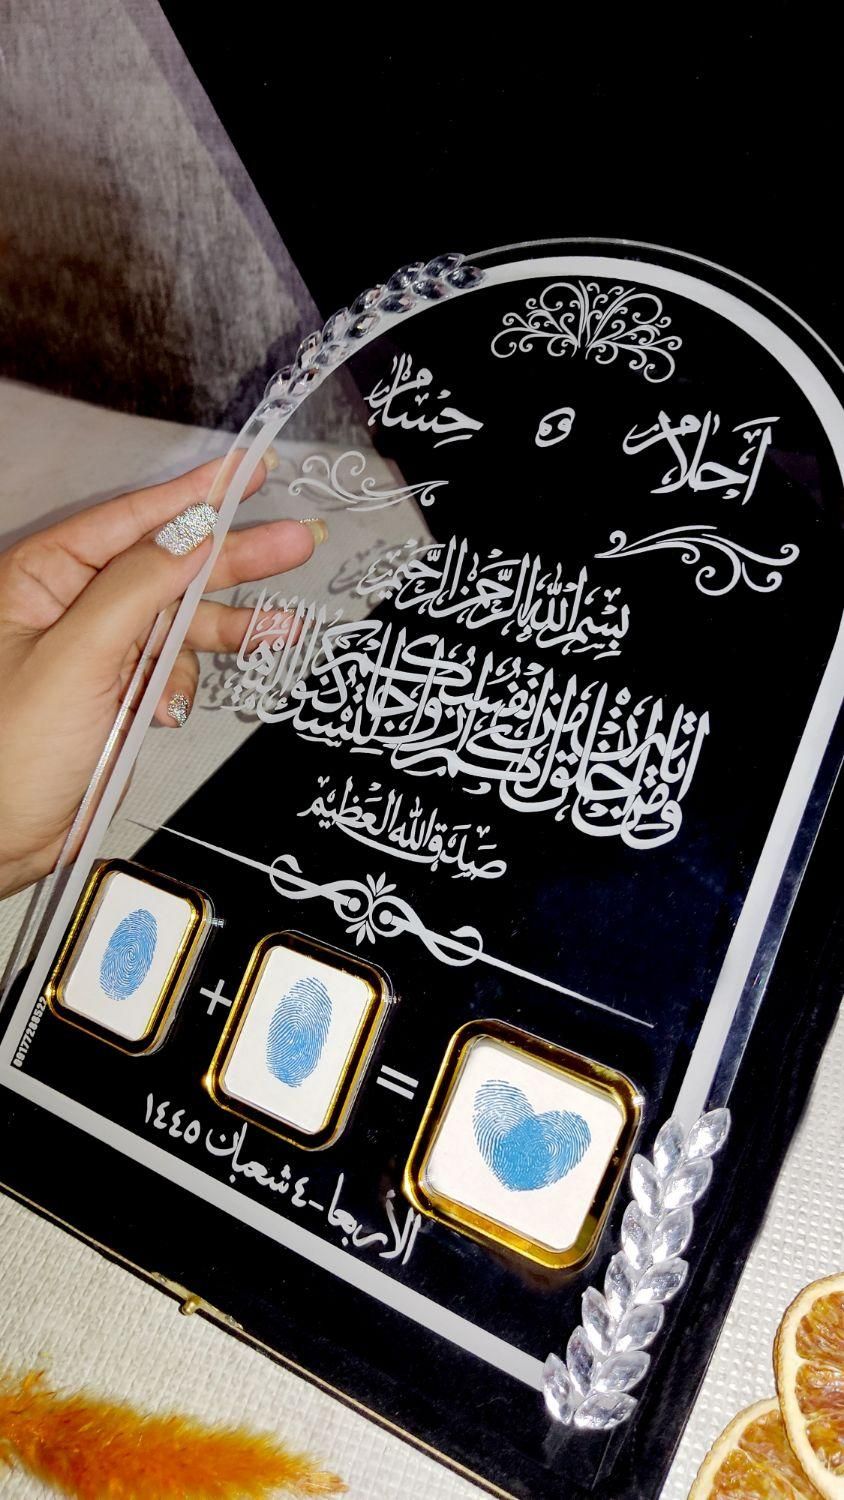 أحلام و حسام
بِسْمِ اللهِ الرَّحْمٰنِ الرَّحِيْمِ
وَمِنْ آيَاتِهِ أَنْ خَلَقَ لَكُمْ مِنْ أَنْفُسِكُمْ أَزْوَاجًا لِتَسْكُنُوا إِلَيْهَا
صَدَقَ اللهُ العَظِيْم
+ =
الأربعا-٤ شعبان ١٤٤٥